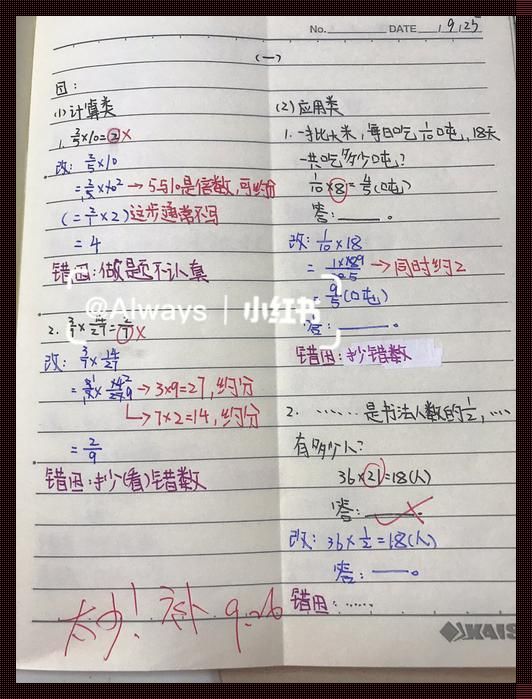 No. DATE 9.25
(一)
因:
(1)计算类
1. 2/5×10=②×
改: 2/5×10
=2/5×10² → 5与10是倍数,可约分
(=2/1×2)这步通常不写
=4
错因:做题不认真
@Always | 小红书
×
改: 3/7×14/27
→ 3×9=27,约分
→ 7×2=14,约分
=2/9
错因:抄(看)错数
(2)应用类
1. 一批大米,每日吃1/10口吨,18天
一共吃多少口吨?
1/10×8=4/5(口吨)
答:______。
改: 1/10×18
→ 同时约2
9/5(口吨)
答:______。
错因:抄错数
2. ……是书法人数的1/2,…
有多少人?
36×21=18(人)
答:______。
改: 36×1/2=18(人)
答:——。
错因:……
太少!补 9.26
KAIS